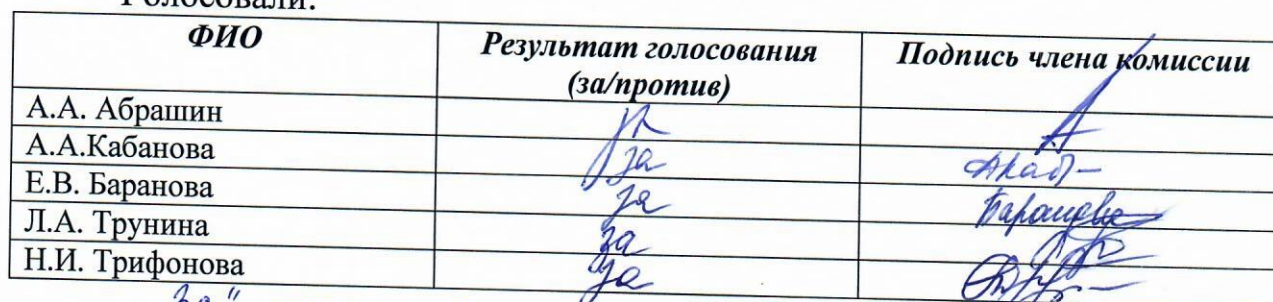 Голосовали:
ФИО Результат голосования (за/против) Подпись члена комиссии
А.А. Абрашин за
А.А.Кабанова за
Е.В. Баранова за Баранова
Л.А. Трунина за
Н.И. Трифонова за
за"